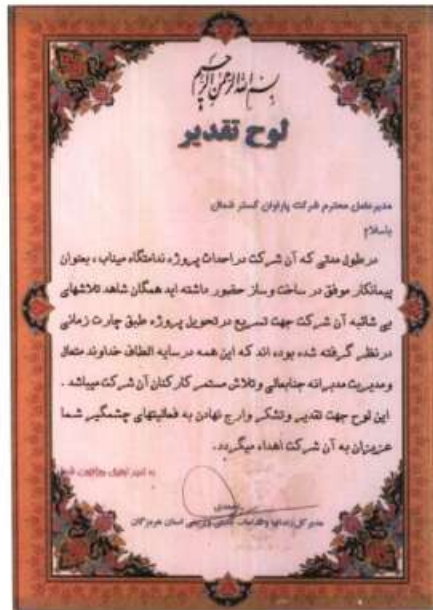 بسم الله الرحمن الرحیم
لوح تقدیر
مدیرعامل محترم شرکت پاراوان گستر شمال
باسلام
در طول مدتی که آن شرکت در احداث پروژه ندامتگاه میناب، بعنوان
پیمانکار موفق در ساخت وساز حضور داشته اید همگان شاهد تلاشهای
بی شائبه آن شرکت جهت تسریع در تحویل پروژه طبق چارت زمانی
در نظر گرفته شده بوده اند که این همه در سایه الطاف خداوند متعال
و مدیریت مدبرانه جنابعالی و تلاش مستمر کارکنان آن شرکت میباشد .
این لوح جهت تقدیر و تشکر و ارج نهادن به فعالیتهای چشمگیر شما
عزیزان به آن شرکت اهداء میگردد.
به امید توفیق روزافزون شما
مدیرکل زندانها و اقدامات تامینی و تربیتی استان هرمزگان